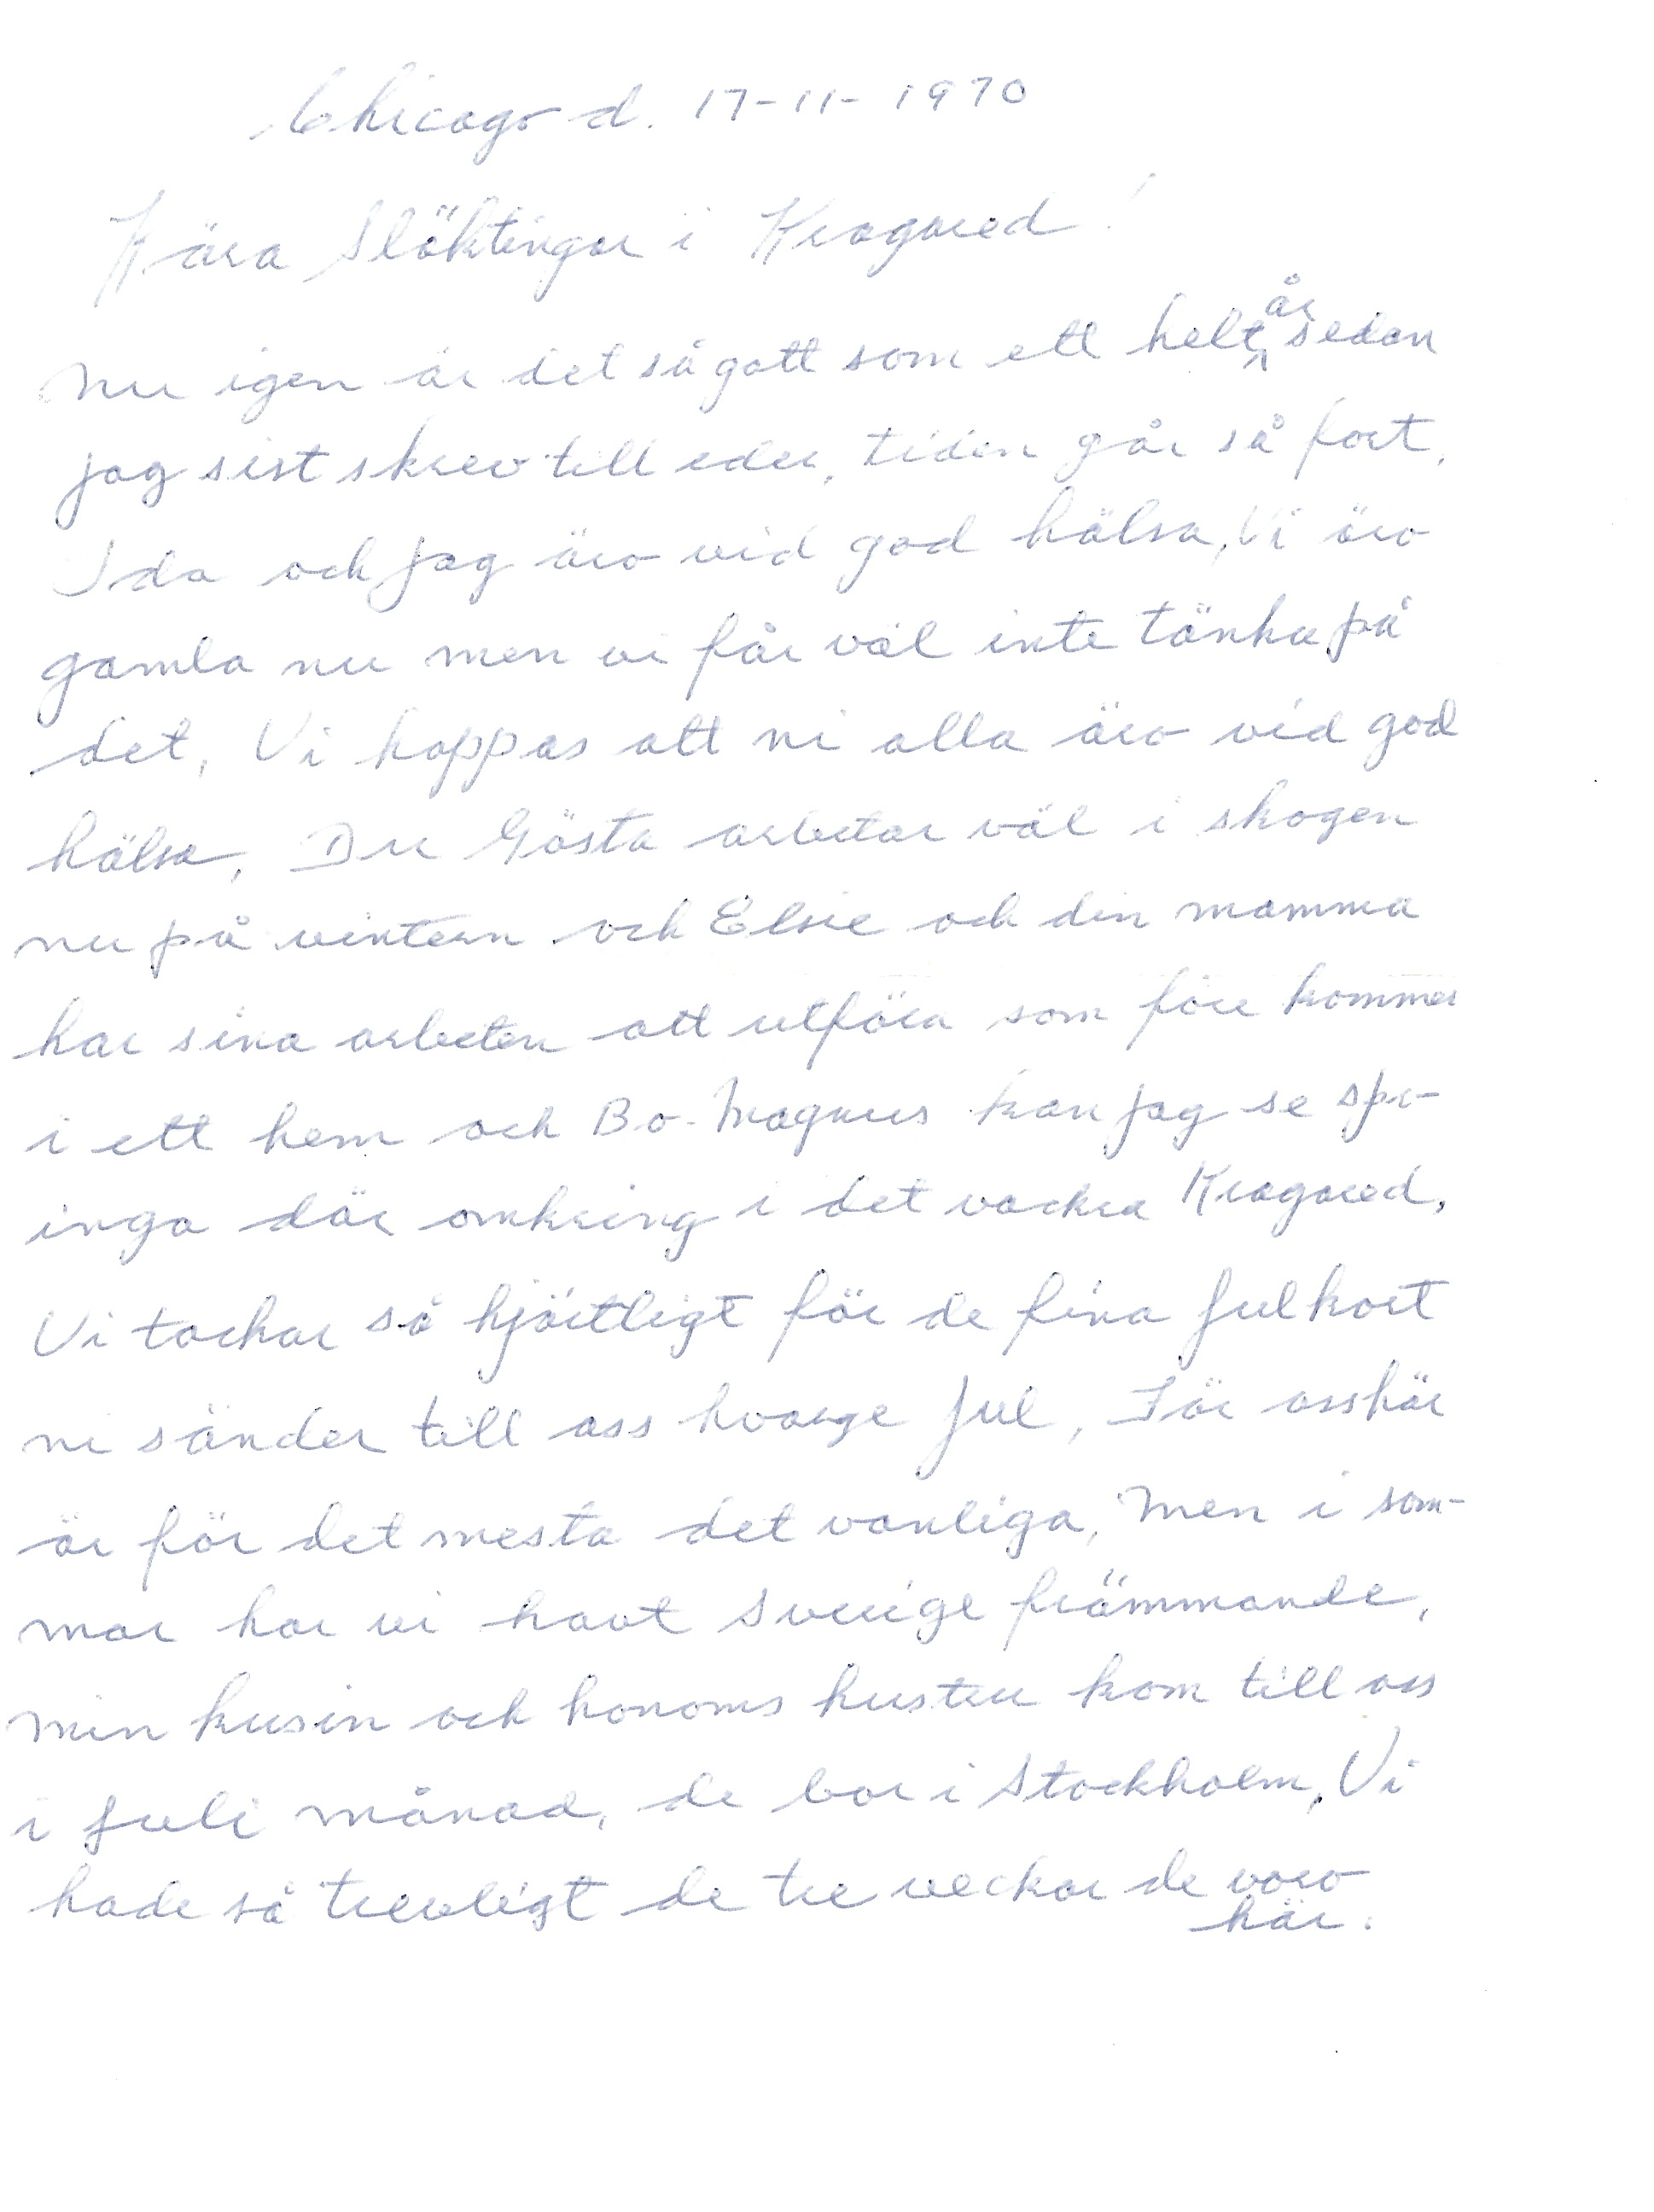 Chicago d. 17-11-1970
Kära Släktingar i Kragared!
Nu igen är det så gott som ett helt år sedan
jag sist skrev till eder, tiden går så fort.
Ida och jag äro vid god hälsa, Vi äro
gamla nu men vi får väl inte tänka på
det, Vi hoppas att ni alla äro vid god
hälsa, Du Gösta arbetar väl i skogen
nu på vintern och Elsie och din mamma
har sina arbeten att utföra som före kommer
i ett hem och Bo-Magnus kan jag se spr-
inga där omkring i det vackra Kragared.
Vi tackar så hjärtligt för de fina julkort
ni sänder till oss hvarge jul, För oss här
är för det mesta det vanliga, Men i som-
mar har vi havt Sverige främmande,
min kusin och honoms hustru kom till oss
i juli månad, de bor i Stockholm, Vi
hade så trevligt de tre veckor de voro
här.